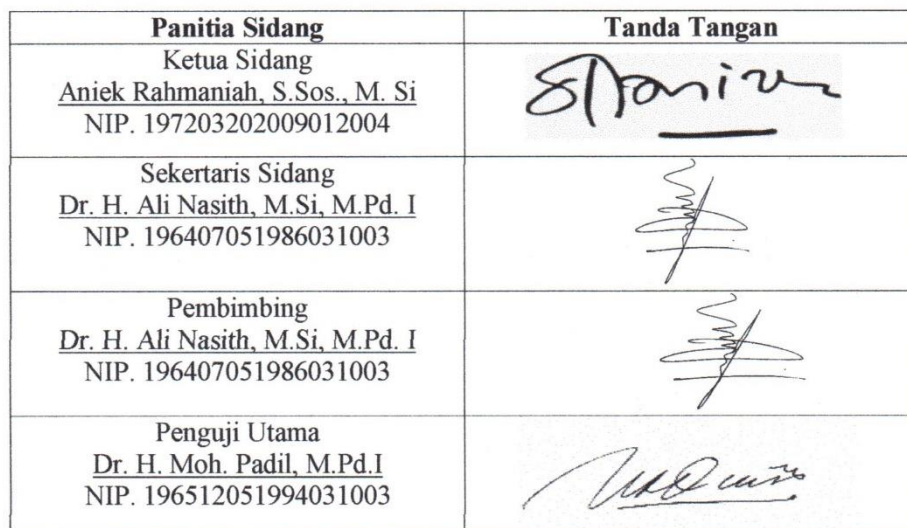 Panitia Sidang
Tanda Tangan
Ketua Sidang
Aniek Rahmaniah, S.Sos., M. Si
NIP. 197203202009012004
Sekertaris Sidang
Dr. H. Ali Nasith, M.Si, M.Pd. I
NIP. 196407051986031003
Pembimbing
Dr. H. Ali Nasith, M.Si, M.Pd. I
NIP. 196407051986031003
Penguji Utama
Dr. H. Moh. Padil, M.Pd.I
NIP. 196512051994031003